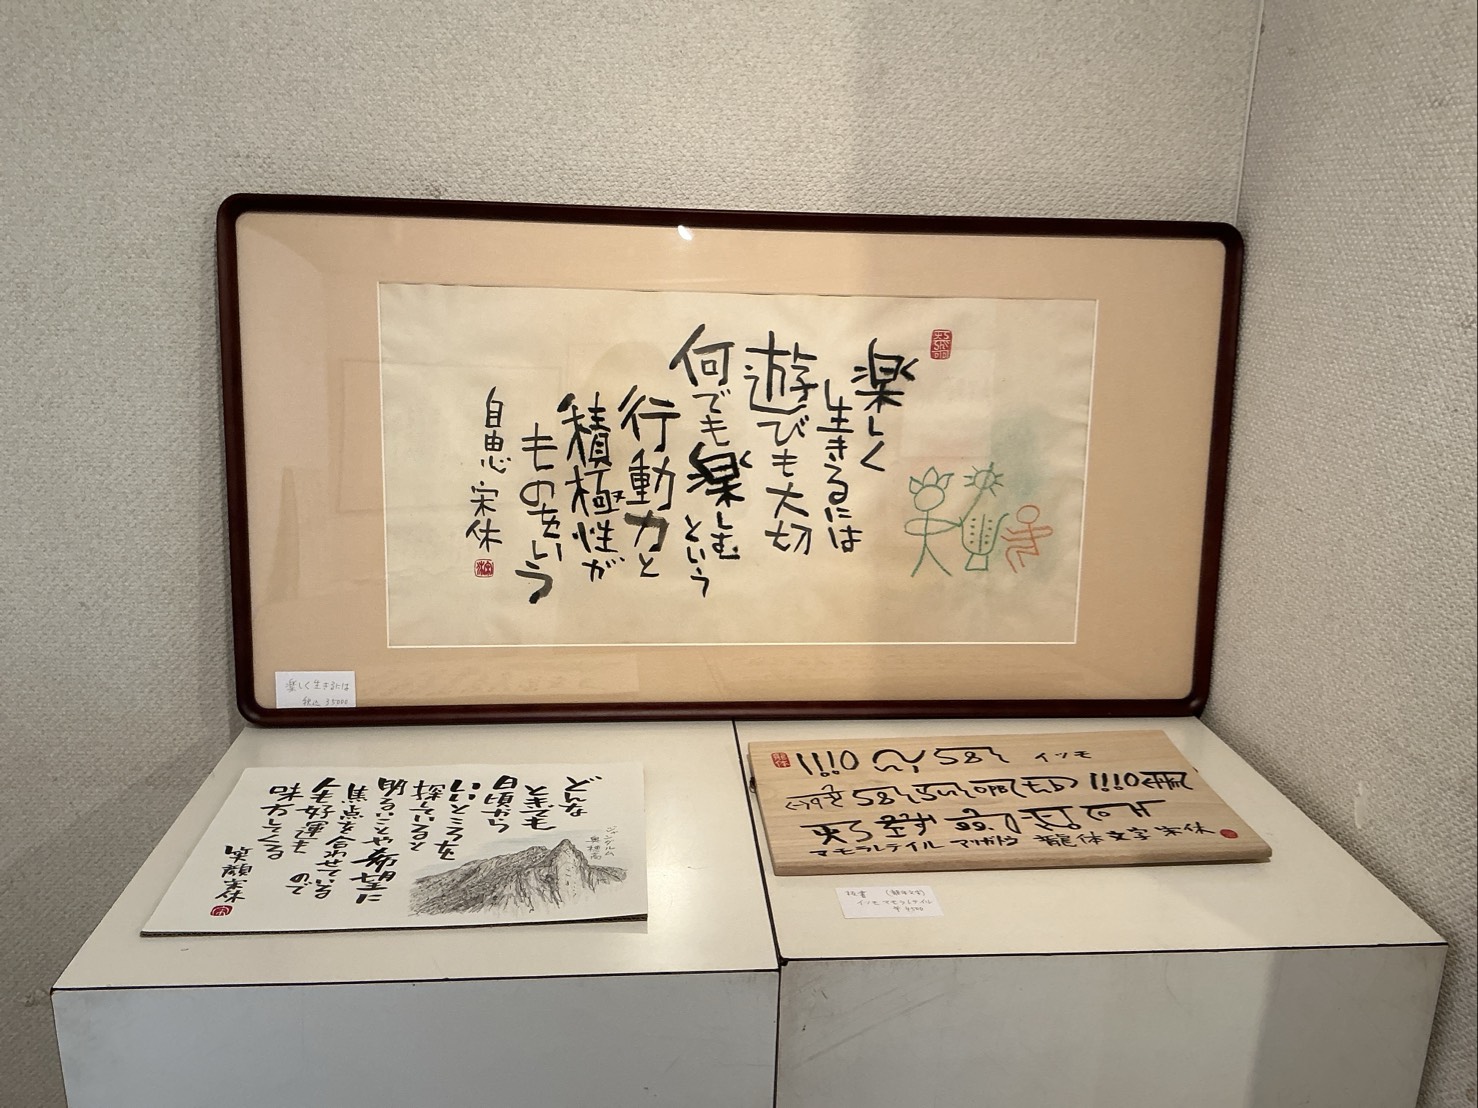 楽しく
生きるには
遊びも大切
何でも楽しむ
という
行動力と
積極性が
ものをいう
自由恵 宋休
楽しく生きるには
税込 35000
どんな
ときでも
日頃から
いいところを
探していると
明るいことや希望に
焦点を合わせている
ので
今も好運も
和してくる
笑顔 宋休
ジャンダルム
奥穂高
イツモ
マモラレテイル アリガトウ 龍体文字 宋休
板書 (龍体文字)
イツモ マモラレテイル
¥4500